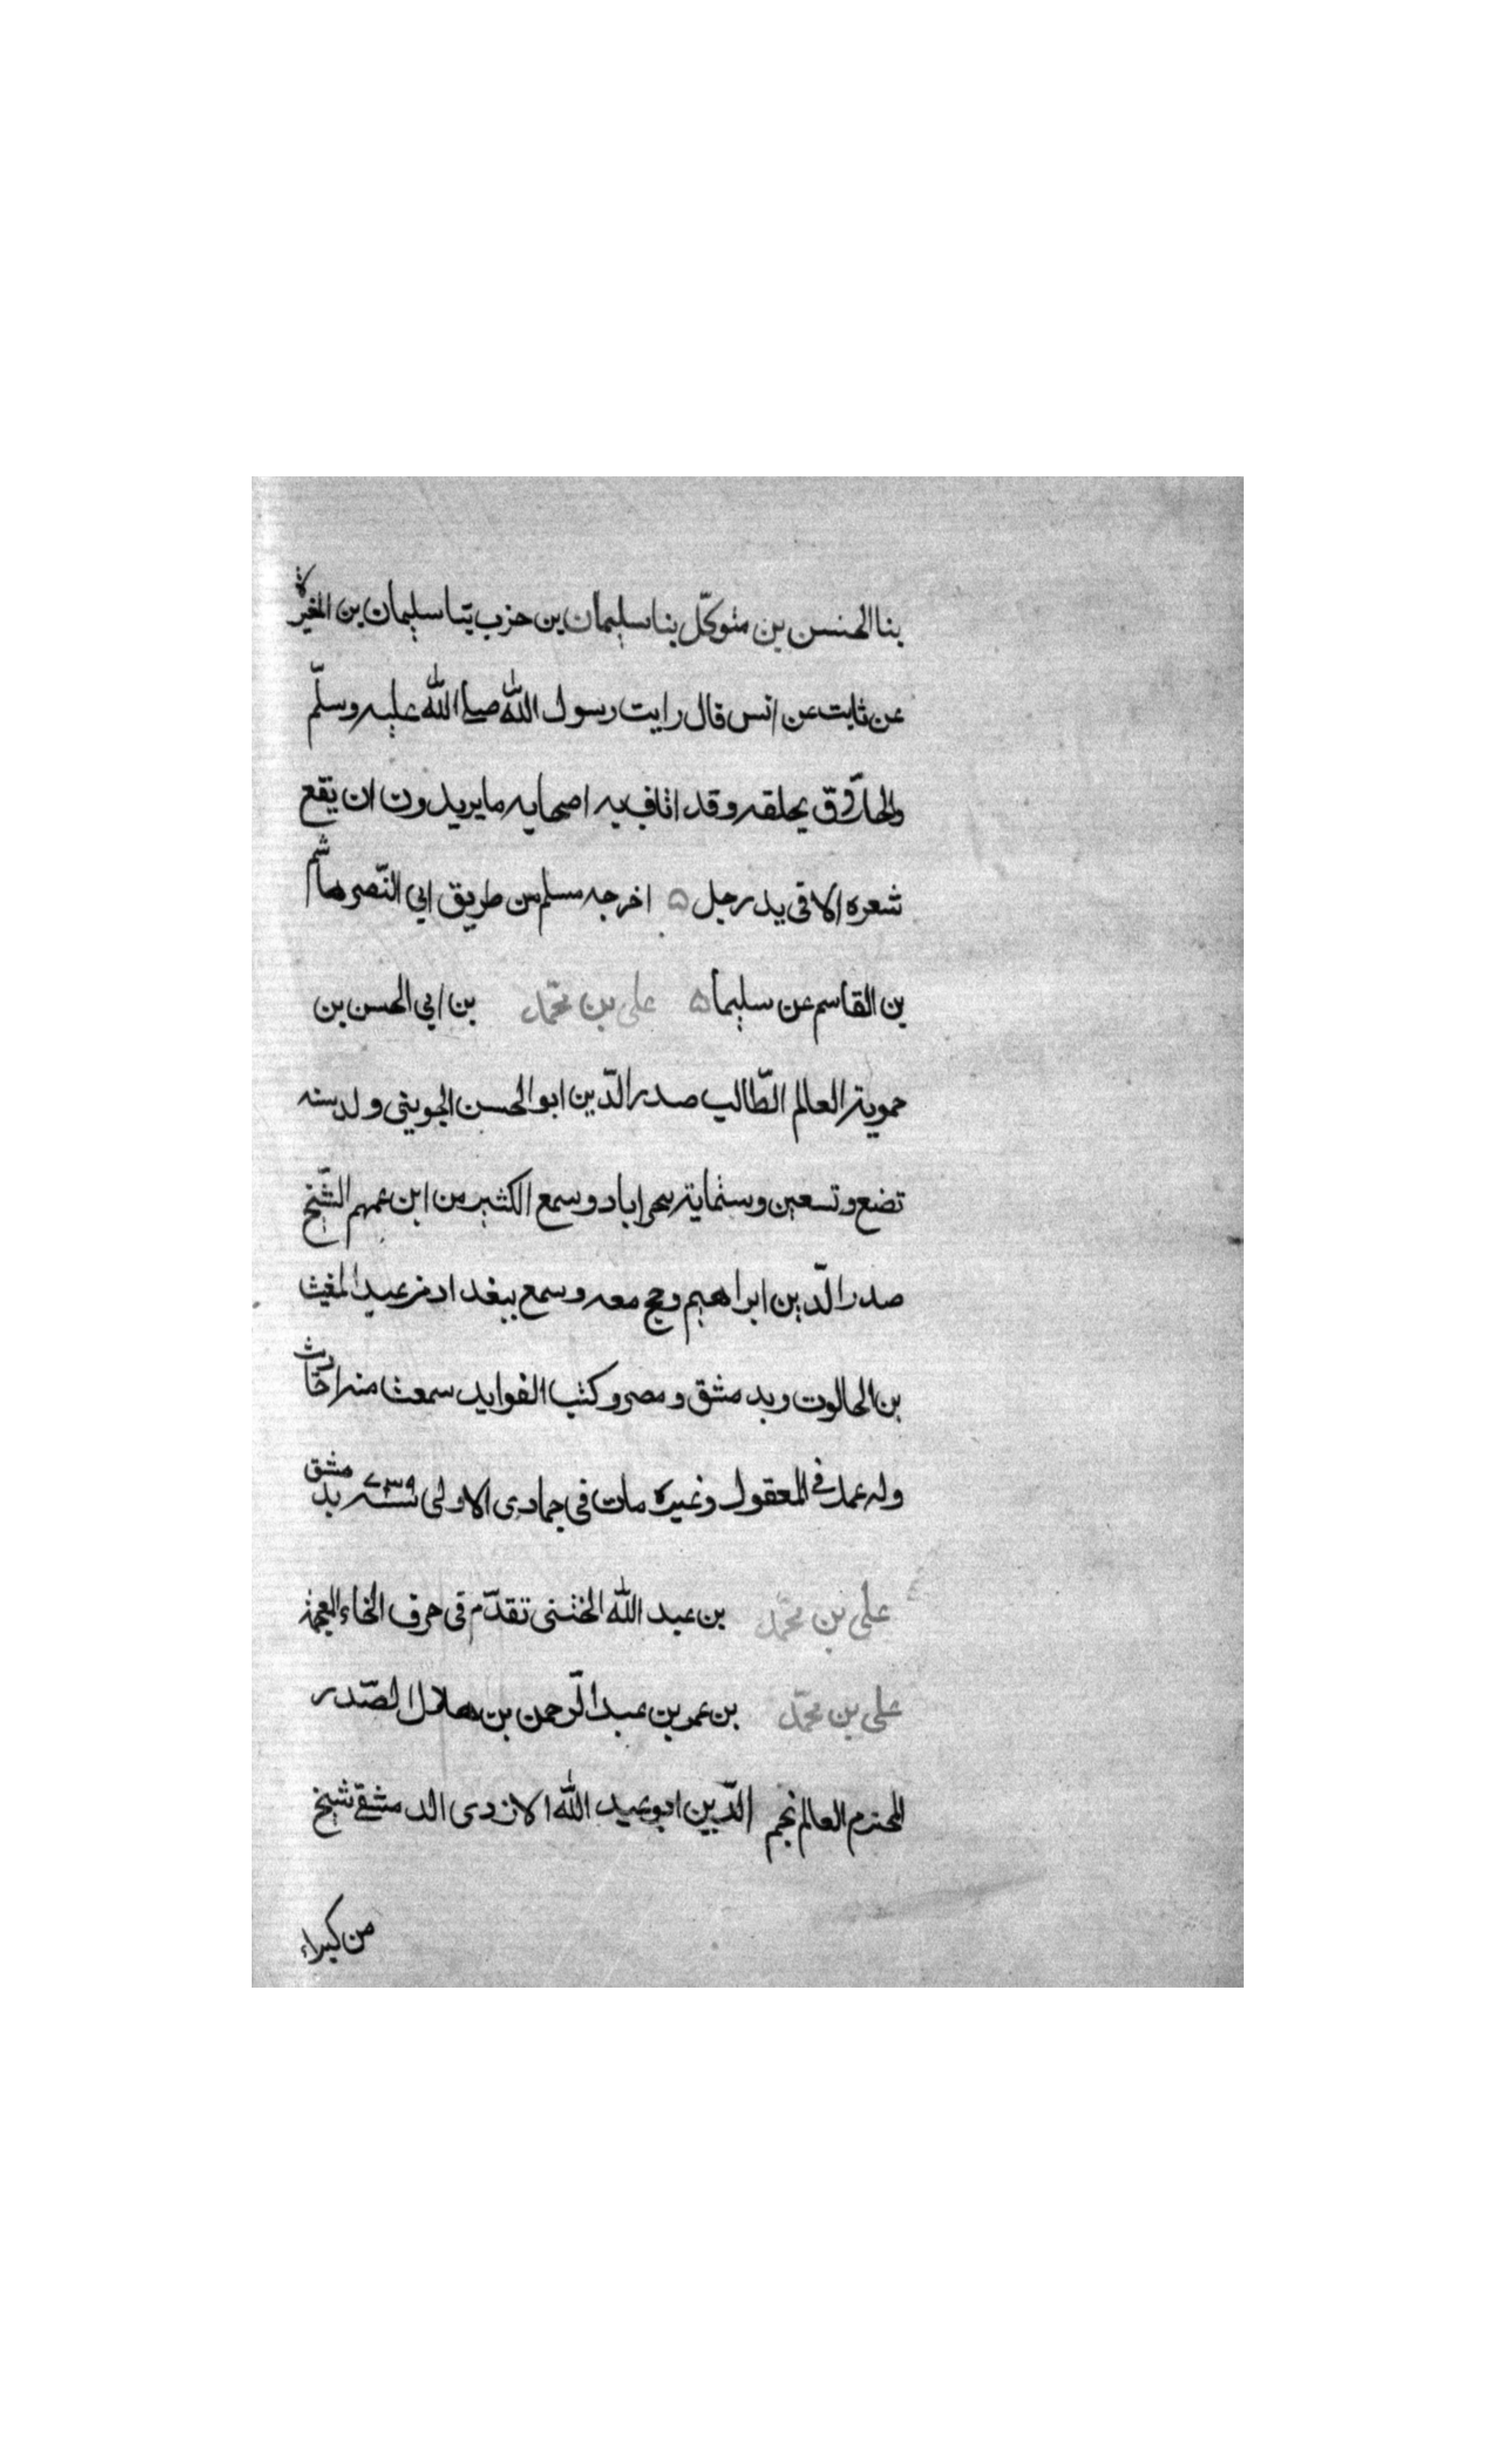 بنا الحنسن بن متوكّل بنا سليمان بن حزب يتنا سليمان بن المغيرة
عن ثابت عن انس قال رايت رسول الله صلى الله عليه وسلّم
والحلّاق يحلقه وقد اثاف به اصحابه ما يريدون ان يقع
شعره الا فى يد رجل ۵ اخرجه مسلم من طريق ابي النّصر هاشم
بن القاسم عن سليما ۵ على بن محّمد بن ابي الحسن بن
حموية العالم الطّالب صدر الدّين ابو الحسن الجوينى ولد سنه
تضع وتسعين وستماية ببحراباد وسمع الكثير من ابن عمهم الشّيخ
صدر الدّين ابراهيم وحج معه وسمع ببغداد من عبد المغيث
بن الحالوت وبدمشق ومصر وكتب الفوايد سمعت منه احاديث
وله عمل في المعقول وغيره مات فى جمادى الاولى سنة ٧٣٩ بدمشق
على بن محّمد بن عبد الله الختنى تقدّم فى حرف الخاء المعجمة
على بن محمّد بن عمر بن عبد الرّحمن بن هلال الصّدر
المحترم العالم نجم الدّين ابو عبد الله الازدى الدمشقى شيخ
من كبراء